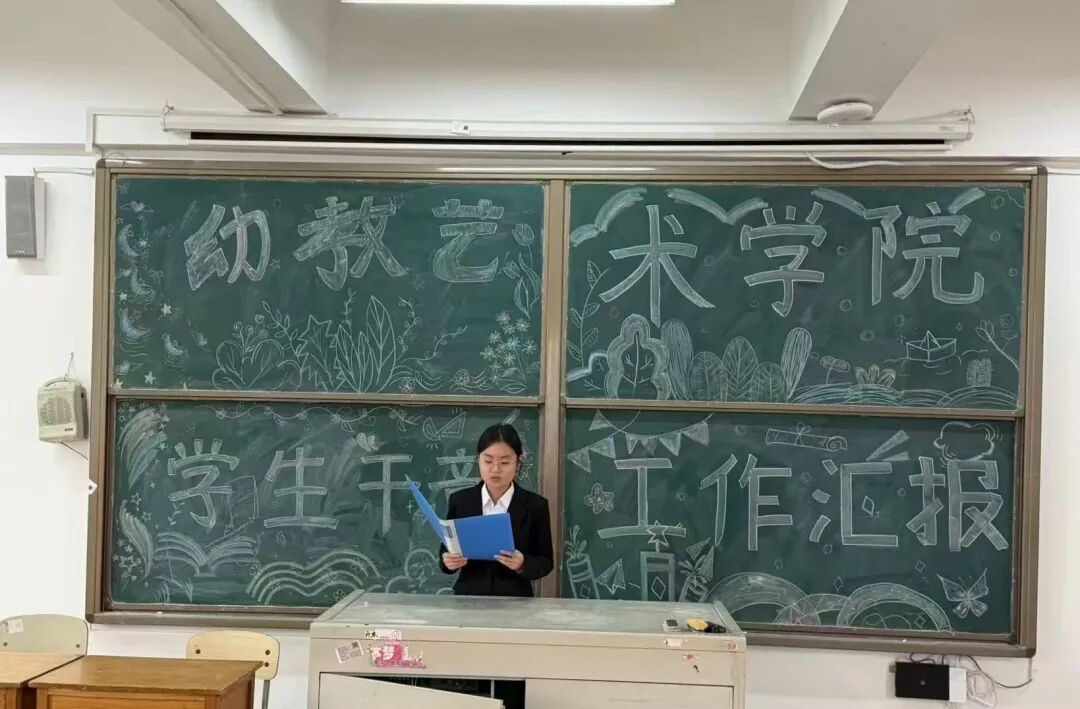 幼教艺术学院
学生干部工作汇报